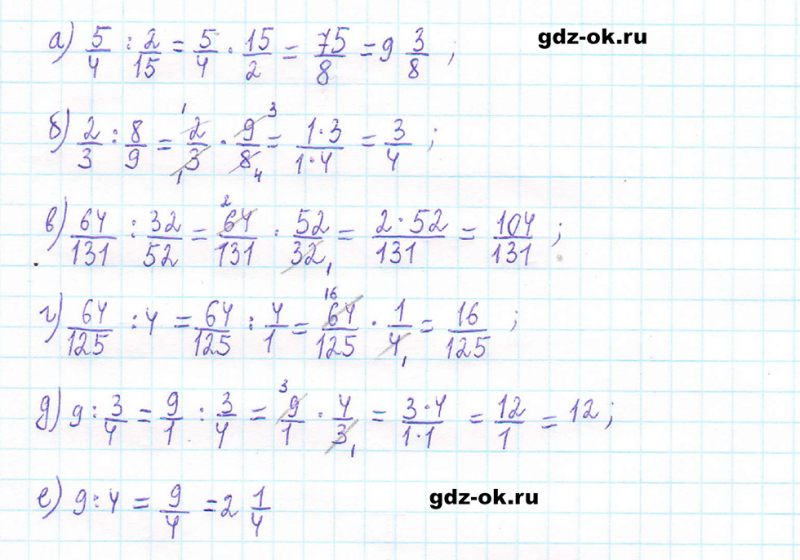 а) 5/4 : 2/15 = 5/4 · 15/2 = 75/8 = 9 3/8 ; gdz-ok.ru
б) 2/3 : 8/9 = 2̸ 1/3̸ 1 · 9̸ 3/8̸ 4 = 1·3/1·4 = 3/4 ;
в) 64/131 : 32/52 = 6̸4̸ 2/131 · 52/3̸2̸ 1 = 2·52/131 = 104/131 ;
г) 64/125 : 4 = 64/125 : 4/1 = 6̸4̸ 16/125 · 1/4̸ 1 = 16/125 ;
д) 9 : 3/4 = 9/1 : 3/4 = 9̸ 3/1 · 4/3̸ 1 = 3·4/1·1 = 12/1 = 12 ;
е) 9 : 4 = 9/4 = 2 1/4 gdz-ok.ru